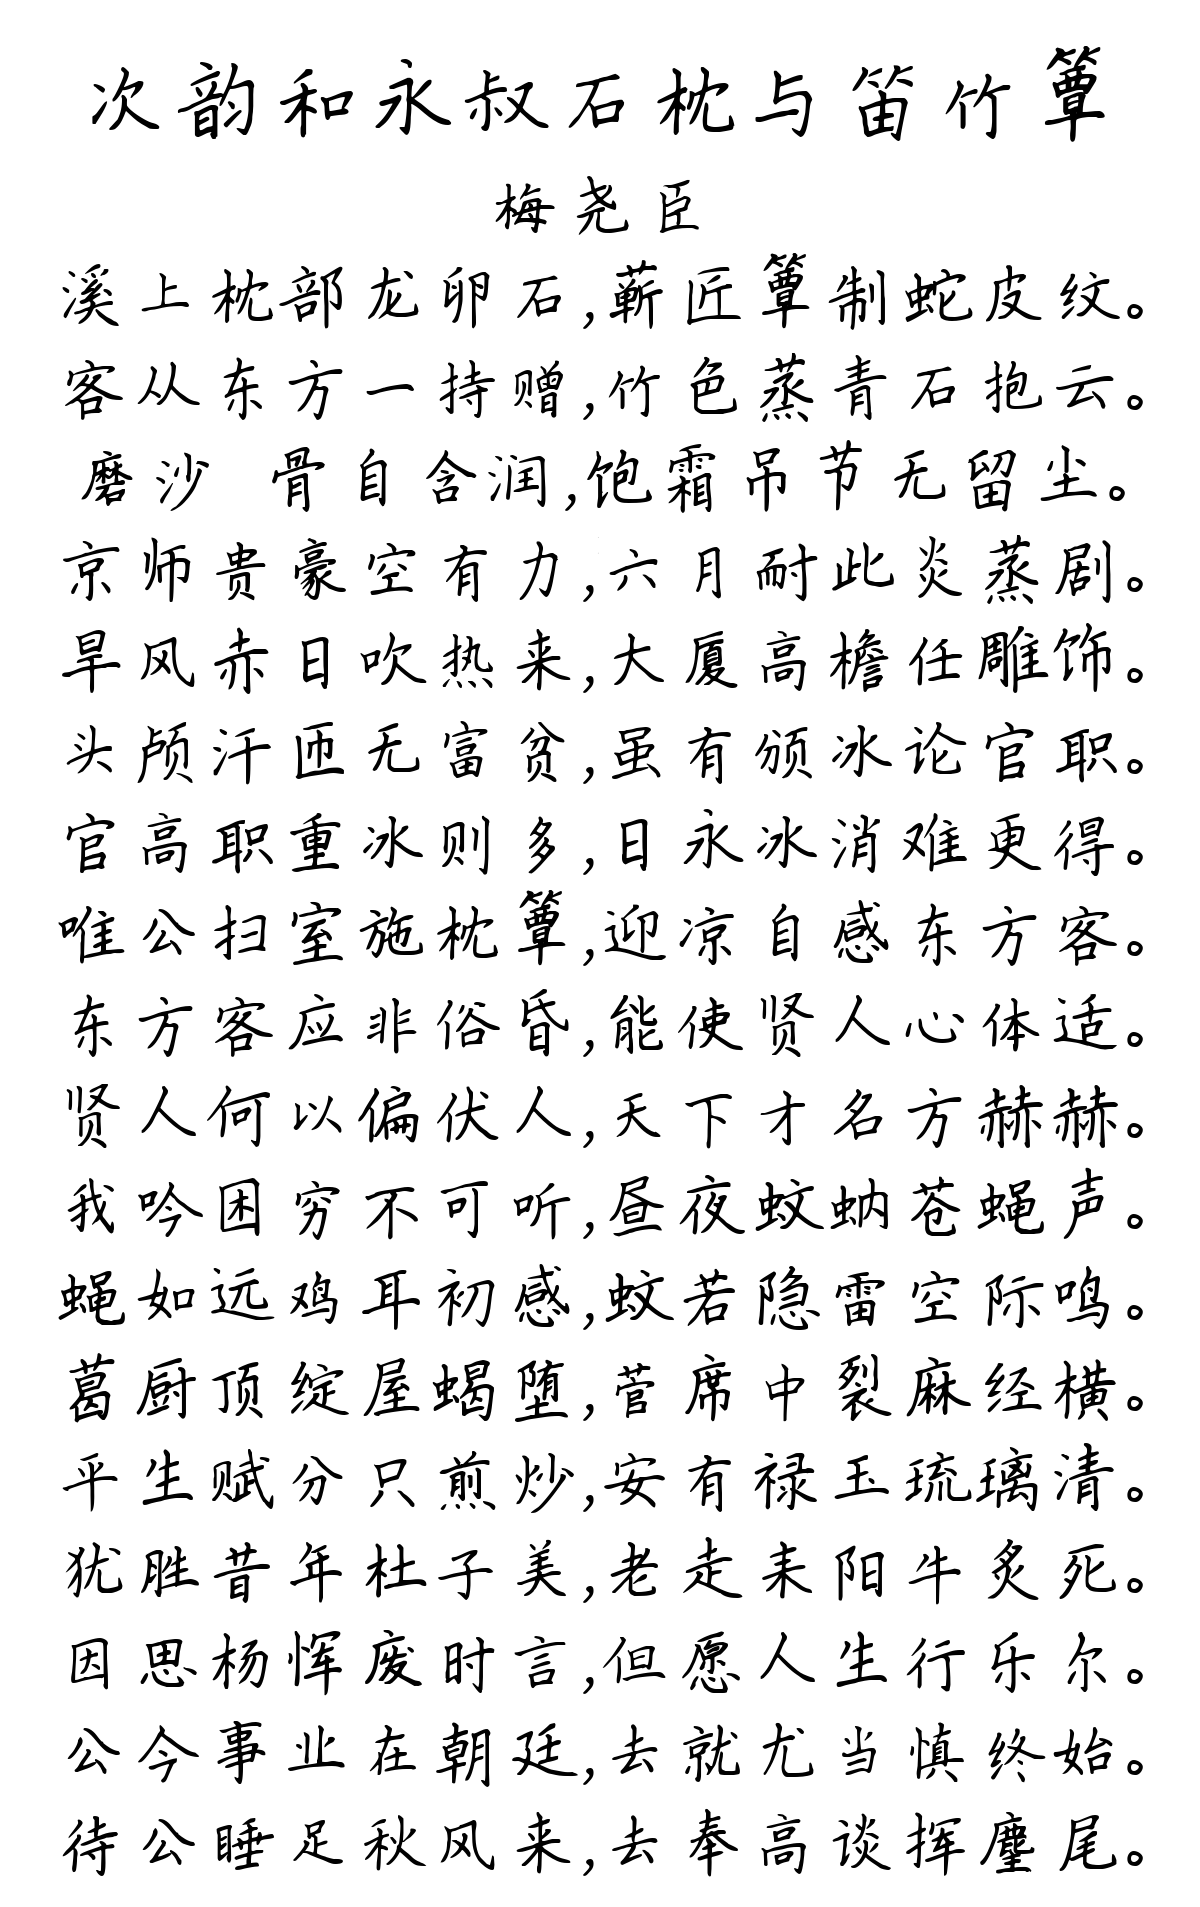 次韵和永叔石枕与笛竹簟
梅尧臣
溪上枕部龙卵石,蕲匠簟制蛇皮纹。
客从东方一持赠,竹色蒸青石抱云。
磨沙 骨自含润,饱霜吊节无留尘。
京师贵豪空有力,六月耐此炎蒸剧。
旱风赤日吹热来,大厦高檐任雕饰。
头颅汗匝无富贫,虽有颁冰论官职。
官高职重冰则多,日永冰消难更得。
唯公扫室施枕簟,迎凉自感东方客。
东方客应非俗昏,能使贤人心体适。
贤人何以偏伏人,天下才名方赫赫。
我吟困穷不可听,昼夜蚊蚋苍蝇声。
蝇如远鸡耳初感,蚊若隐雷空际鸣。
葛厨顶绽屋蝎堕,菅席中裂麻经横。
平生赋分只煎炒,安有禄玉琉璃清。
犹胜昔年杜子美,老走耒阳牛炙死。
因思杨恽废时言,但愿人生行乐尔。
公今事业在朝廷,去就尤当慎终始。
待公睡足秋风来,去奉高谈挥麈尾。